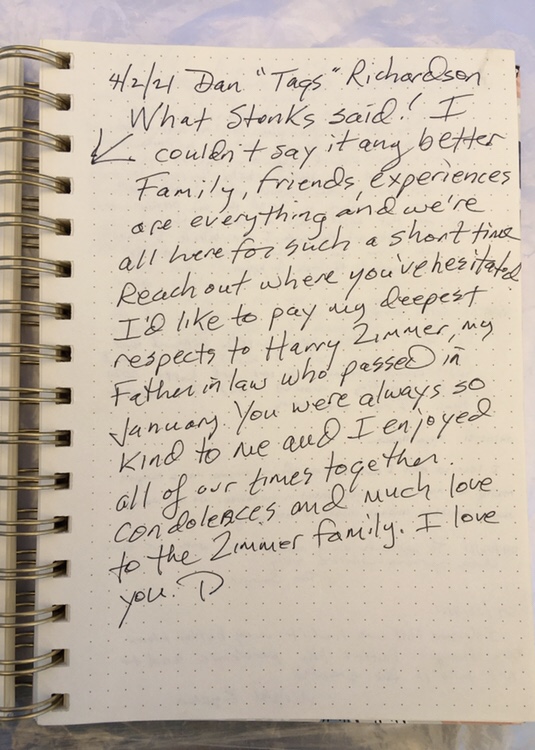 4/2/21 Dan "Tags" Richardson
What Stonks said! I
couldn't say it any better
Family, friends, experiences
are everything and we're
all here for such a short time
Reach out where you've hesitated
I'd like to pay my deepest
respects to Harry Zimmer, my
Father in law who passed in
January. You were always so
kind to me and I enjoyed
all of our times together.
Condolences and much love
to the Zimmer family. I love
you. D